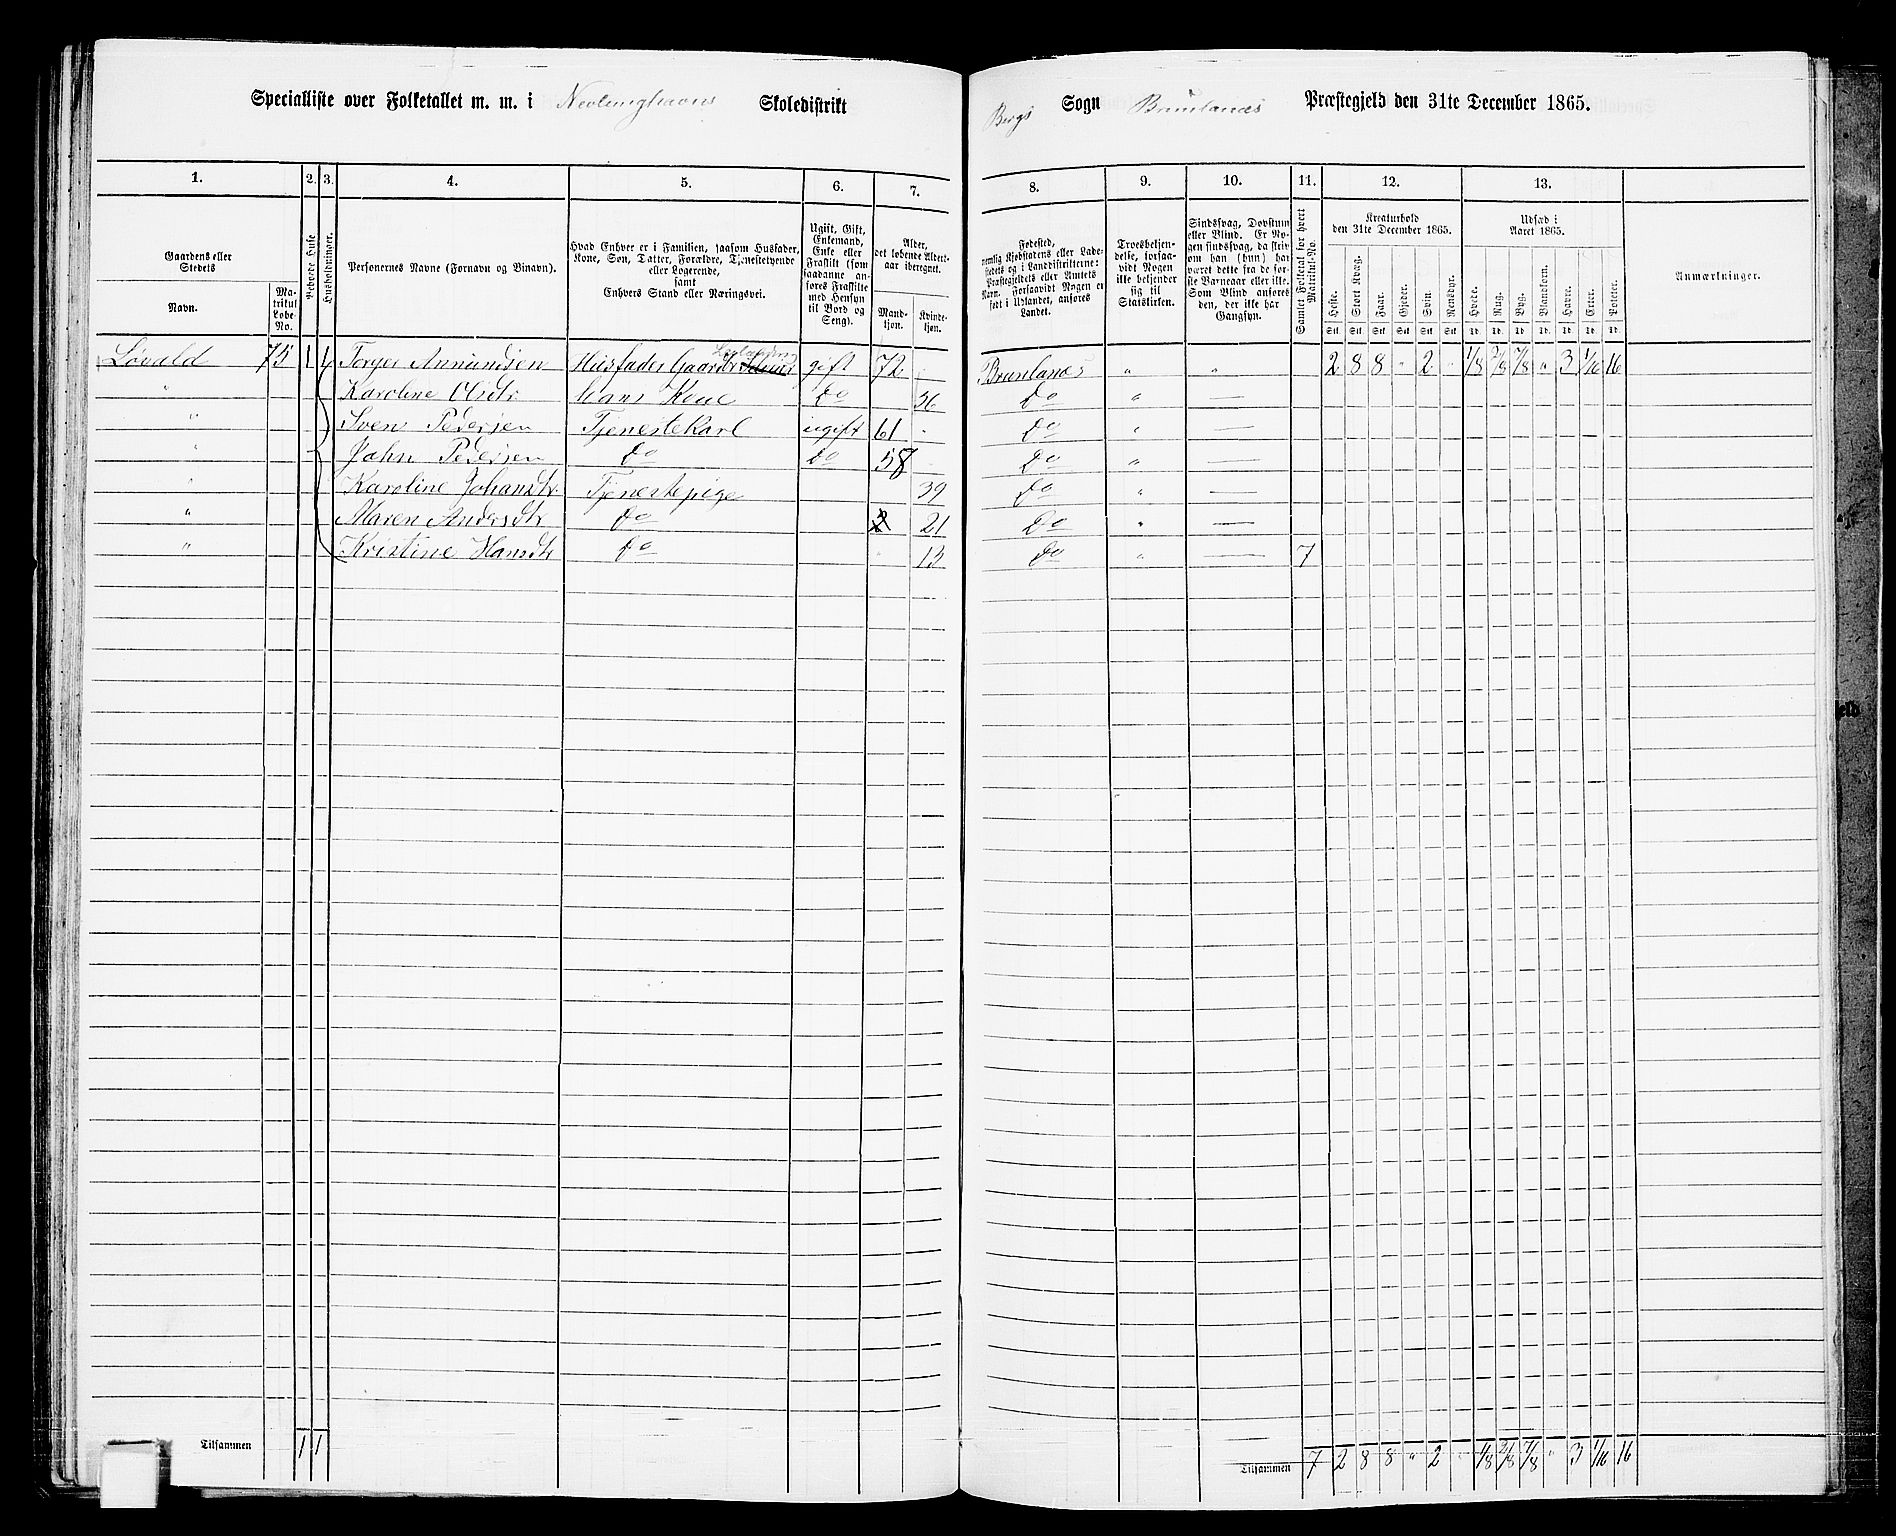 Specialliste over Folketallet m. m. i Nevlunghavns Skoledistrikt
Bergs Sogn Brunlanes Præstegjeld den 31te December 1865.
1. 2. 3. 4. 5. 6. 7. 8. 9. 10. 11. 12. 13.
Gaardens eller
Stedets
Navn.
Ma-
trikul
Løbe-
No.
Beboede Huse
Husholdninger.
Personernes Navne (Fornavn og Binavn).
Hvad Enhver er i Familien, saasom Husfader,
Kone, Søn, Datter, Forældre, Tjenestetyende
eller Logerende,
samt
Enhvers Stand eller Næringsvei.
Ugift, Gift,
Enkemand,
Enke eller
Fraskilt (som
saadanne an-
føres Fraskilte
med Hensyn
til Bord og
Seng).
Alder,
det løbende Alders-
aar iberegnet.
Mand-
kjøn.
Kvinde-
kjøn.
Fødested,
nemlig Kjøbstadens eller Lade-
stedets og i Landdistrikterne:
Præstegjeldets eller Amtets
Navn. Forsaavidt Nogen er
født i Udlandet, anføres
Landet.
Troesbekjen-
delse, forsaa-
vidt Nogen
ikke bekjender
sig til
Statskirken.
Sindssvag, Døvstum
eller Blind. Er No-
gen sindssvag, da skriv
om han (hun) har
været dette fra de før-
ste Barneaar eller ikke.
Som Blind anføres
den, der ikke har
Gangsyn.
Samlet Folketal for hvert
Matrikul-No.
Kreaturhold
den 31te December 1865.
Heste. Stort Kvæg. Faar. Gjeder. Svin. Rensdyr.
Stk. Stk. Stk. Stk. Stk. Stk.
Udsæd i
Aaret 1865.
Hvede. Rug. Byg. Blandkorn. Havre. Erter. Poteter.
Td. Td. Td. Td. Td. Td. Td.
Anmærkninger.
Lovald 75 1 1 Torger Amundsen Husfader Gaardbr gift 72 Brunlanes " " 2 8 8 " 2 " 1/8 2/8 7/8 " 3 1/16 16
" Karoline Olsdtr Hans Kone do 36 do " —
" Sven Pedersen Tjenestekarl ugift 61 " do " —
" John Pedersen do do 58 do " —
" Karoline Johansdtr. Tjenestepige 39 do " —
" Maren Andersdtr do 2 21 do " —
" Kristine Hansdtr do " 13 do " — 7
Tilsammen 1 1
Tilsammen 7 2 8 8 " 2 " 1/8 2/8 7/8 " 3 1/16 16